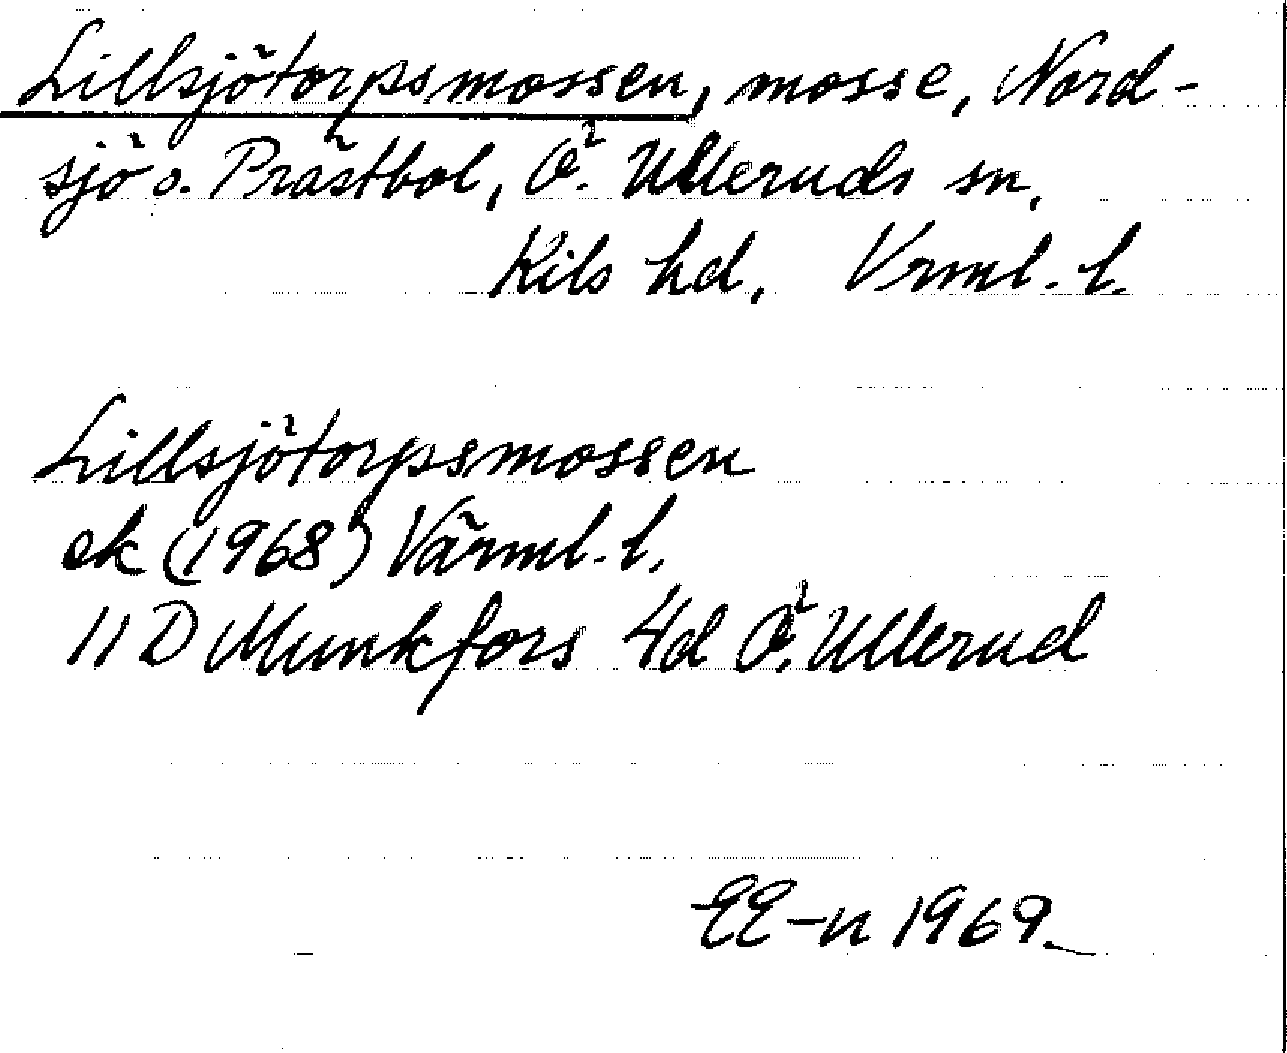 Lillsjötorpsmossen, mosse, Nord-
sjö o. Prästbol, Ö. Ulleruds sn,
Kils hd, Vrml. l.
Lillsjötorpsmossen
ek (1968) Värml. l.
11 D Munkfors 4d Ö. Ullerud
EE-n 1969.